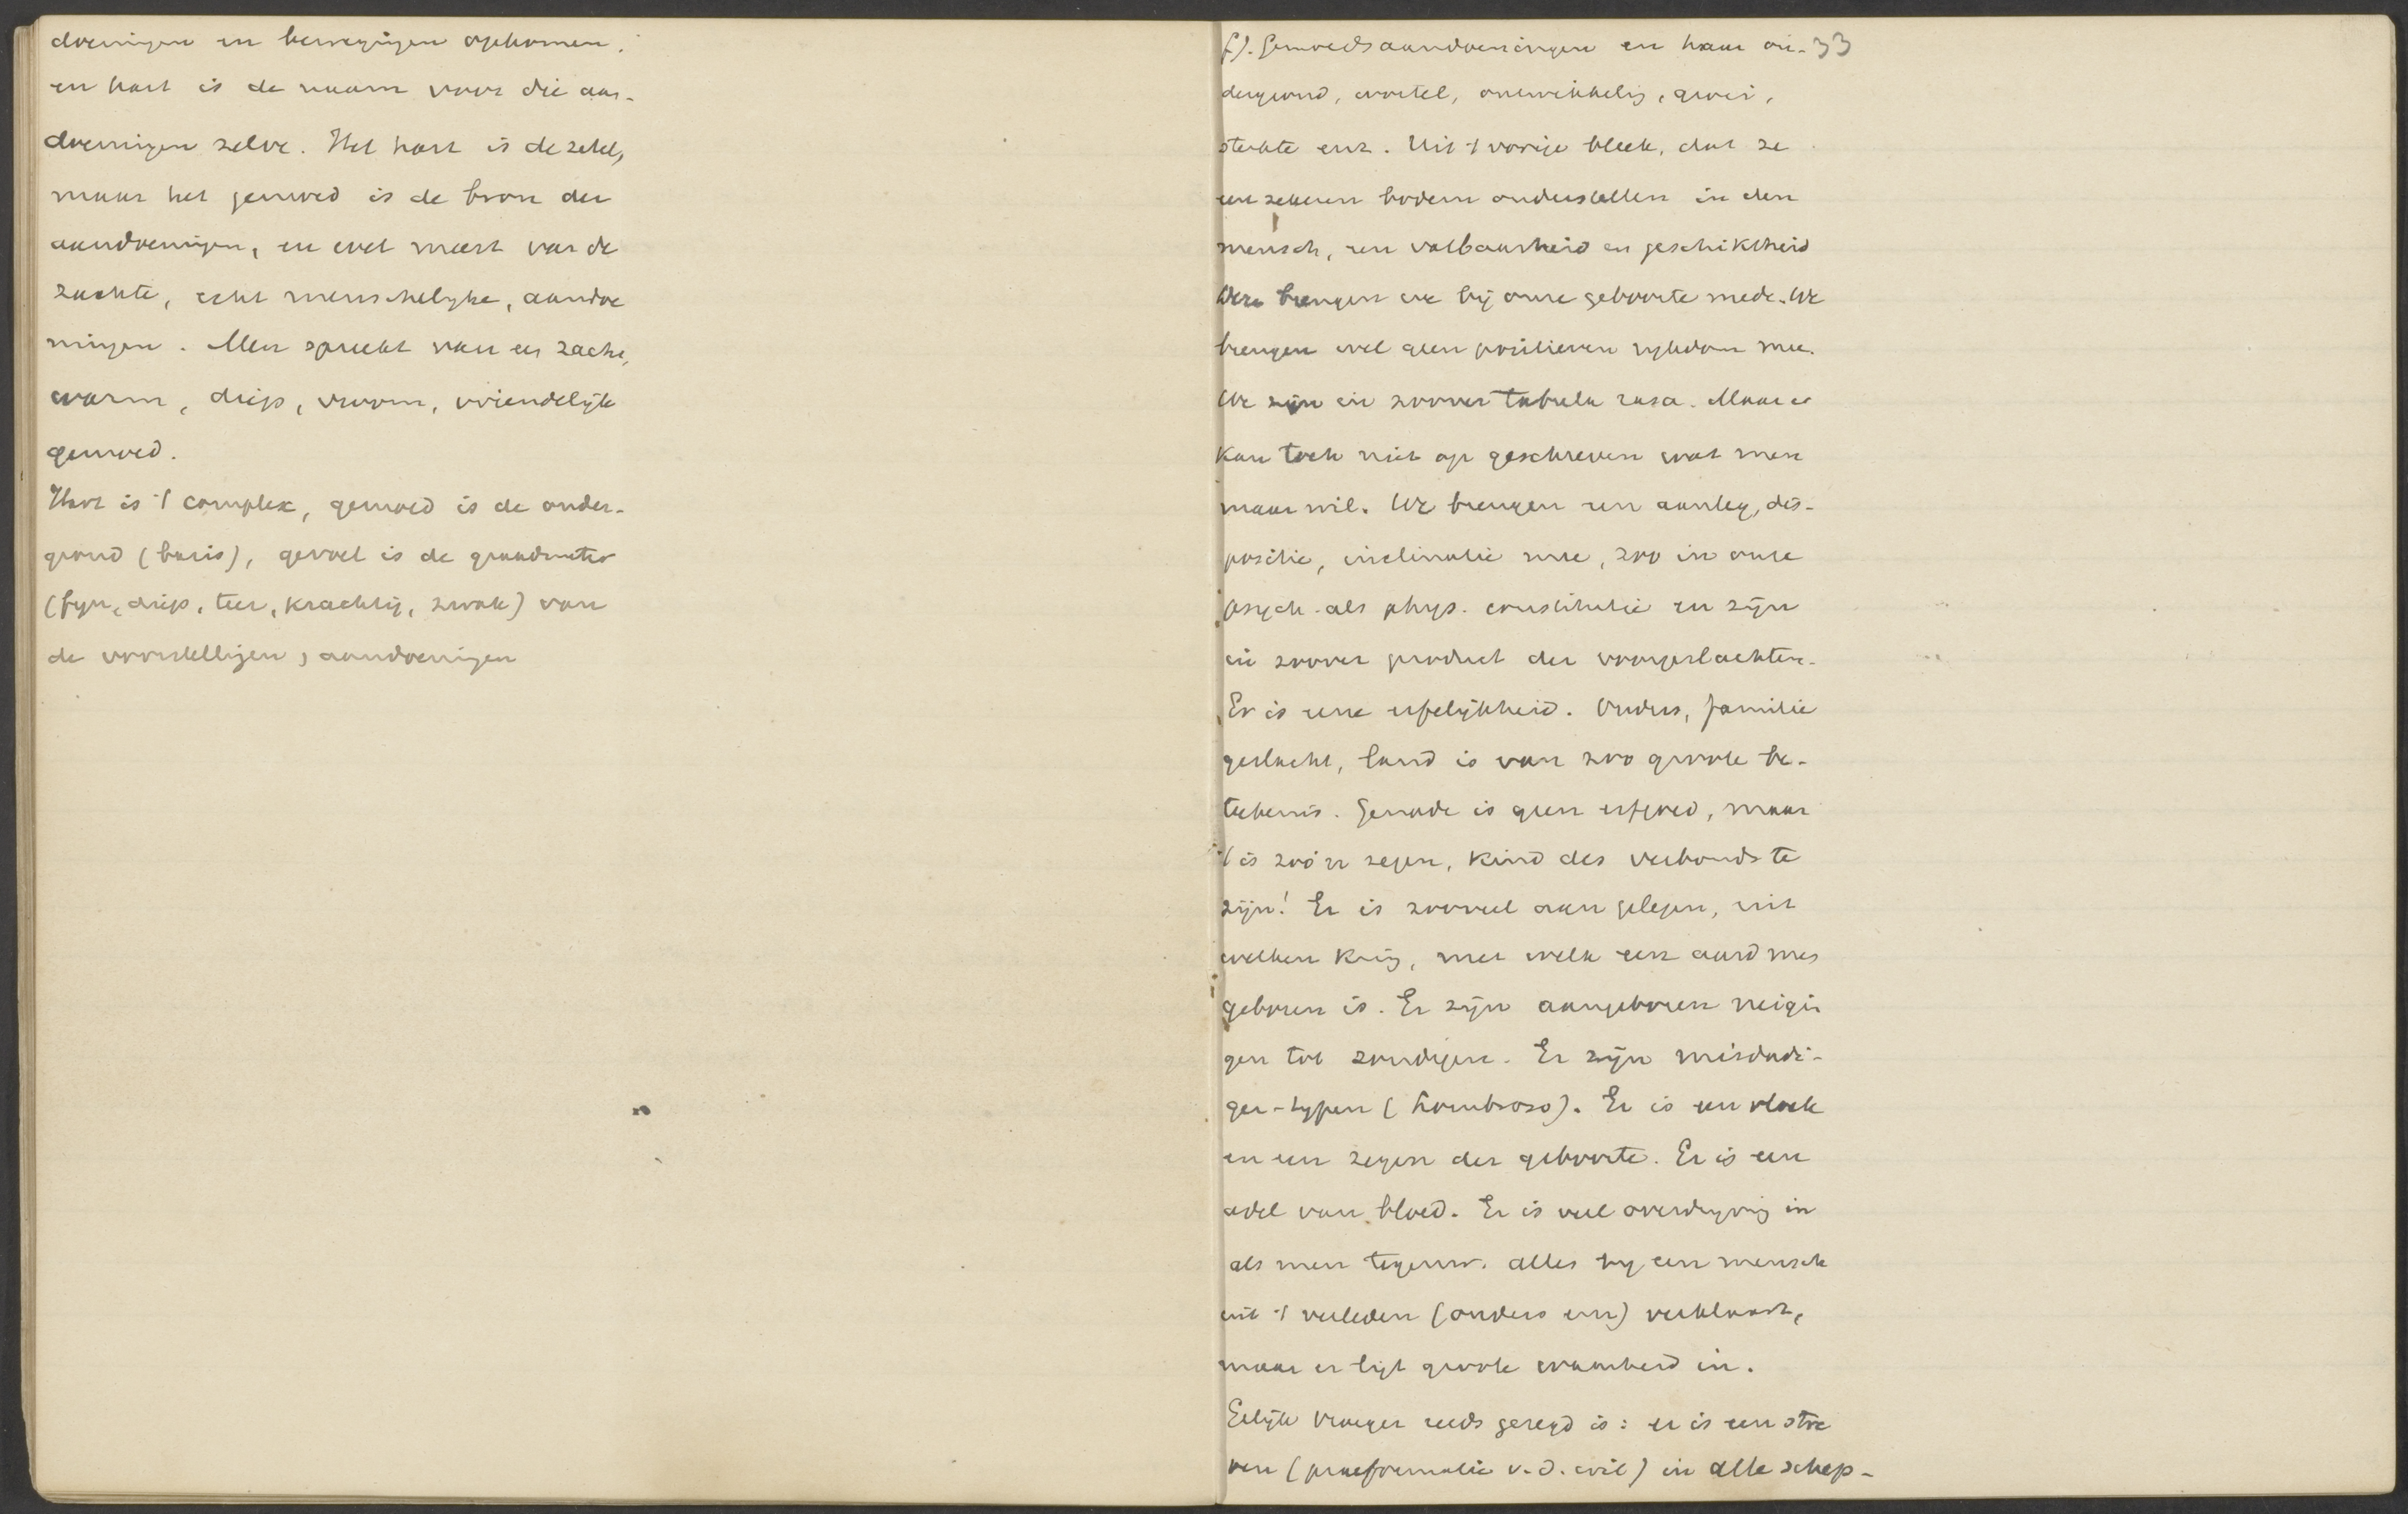 doeningen en bewegingen opkomen.
en hart is de naam voor die aan-
doeningen zelve. Het hart is de zetel,
maar het gemoed is de bron der
aandoeningen, en wel meest van de
zachte, echt menschelyke, aandoe
ningen. Men spreekt van een zacht,
warm, diep, vroom, vriendelijk
gemoed.
Hart is 't complex, gemoed is de onder-
grond (basis), gevoel is de graadmeter
(fyn, diep, teer, krachtig, zwak) van
de voorstellingen, aandoeningen
f). Gemoedsaandoeningen en haar on- 33
dergrond, wortel, ontwikkeling, groei,
sterkte enz. Uit 't vorige bleek, dat ze
een zekeren bodem onderstellen in den
mensch, een vatbaarheid en geschiktheid
Deze brengen we bij onze geboorte mede. We
brengen wel geen positieven rykdom mee.
We zijn in zoover tabula rasa. Maar er
kan toch niet op geschreven wat men
maar wil. We brengen een aanleg, dis-
positie, inclinatie mee, zoo in onze
psych. als phys. constitutie en zijn
in zoover product der voorgeslachten.
Er is eene erfelijkheid. Ouders, familie
geslacht, land is van zoo groote be-
teekenis. Genade is geen erfgoed, maar
't is zoo'n zegen, kind des verbonds te
zijn! Er is zooveel aan gelegen, uit
welken kring, met welk een aard men
geboren is. Er zijn aangeboren neigin
gen tot zondigen. Er zijn misdadi-
ger-typen (Lombroso). Er is een vloek
en een zegen der geboorte. Er is een
adel van bloed. Er is veel overdryving in
als men tegenw. alles by een mensch
uit 't verleden (ouders enz) verklaart,
maar er ligt groote waarheid in.
Gelijk vroeger reeds gezegd is: er is een stre
ven (praeformatie v.d. wil) in alle schep-